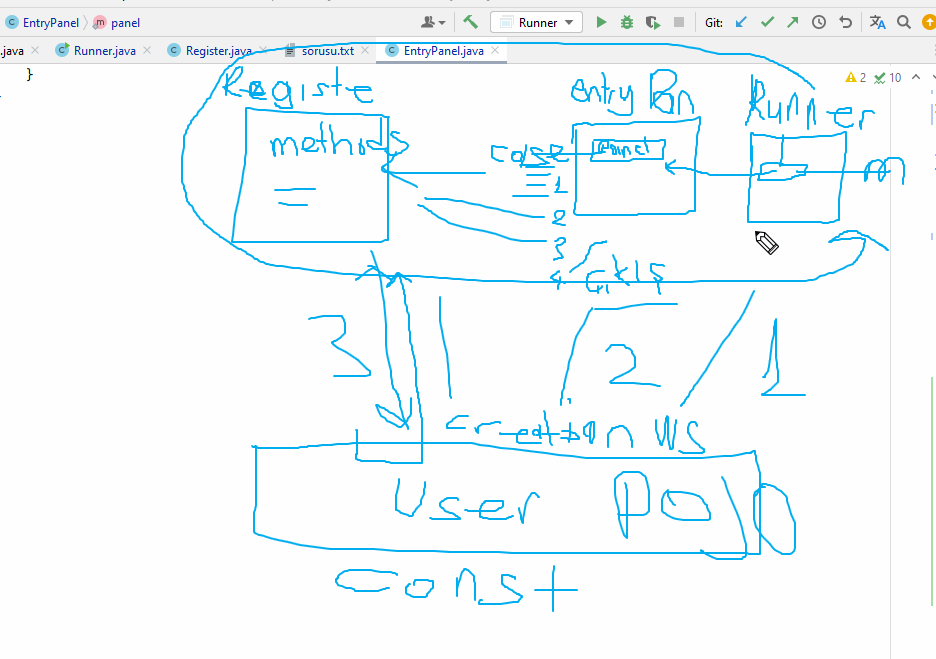 EntryPanel m panel Runner Git:
.java Runner.java Register.java sorusu.txt EntryPanel.java
} 2 10
Registe entry Pan Runner
methods case panel m
1
2
3
4 Çıkış
3 2 1
creation WS
User POJO
const